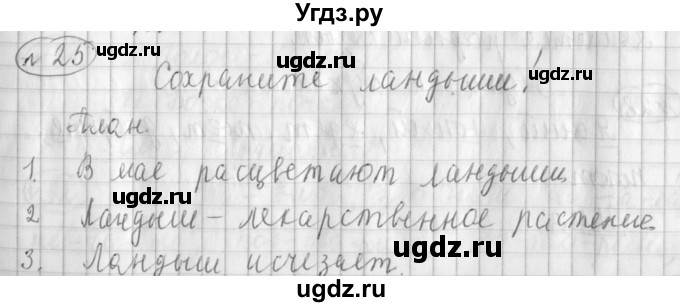 Угдз.ру
№ 25
Сохраните ландыши!
План.
1. В мае расцветают ландыши.
2. Ландыш – лекарственное растение.
3. Ландыш исчезает.
ugdz.ru ugdz.ru
ugdz.ru ugdz.ru
ugdz.ru ugdz.ru
ugdz.ru ugdz.ru